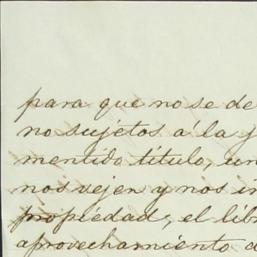 para que no se de
no sujetos á la
mentido título, un
nos vejen y nos in
propiedad, el lib
aprovechamiento d